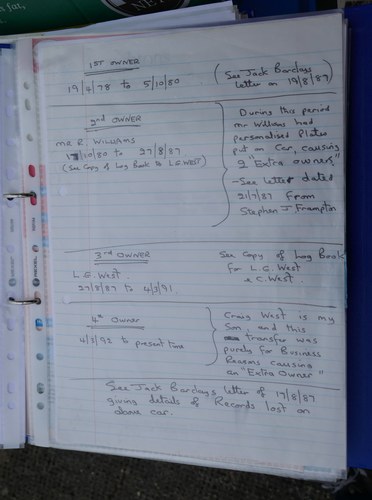 1ST OWNER
19/4/78 to 5/10/80
(See Jack Barclays
letter on 19/8/87)
2nd OWNER
MR R. WILLIAMS
/10/80 to 27/8/87
(See Copy of Log Book to L.G. WEST)
During this period
Mr Williams had
personalised Plates
put on Car, causing
2 "Extra owners"
- See letter dated
21/7/87 From
Stephen J Frampton
3rd OWNER
L.G. West
27/8/87 to 4/3/91.
See Copy of Log Book
for L.G. West
& C. West.
4th Owner
4/3/91 to present time
Craig West is my
Son, and this
transfer was
purely for Business
Reasons causing
an "Extra Owner"
See Jack Barclays letter of 17/8/87
giving details of Records lost on
above car.